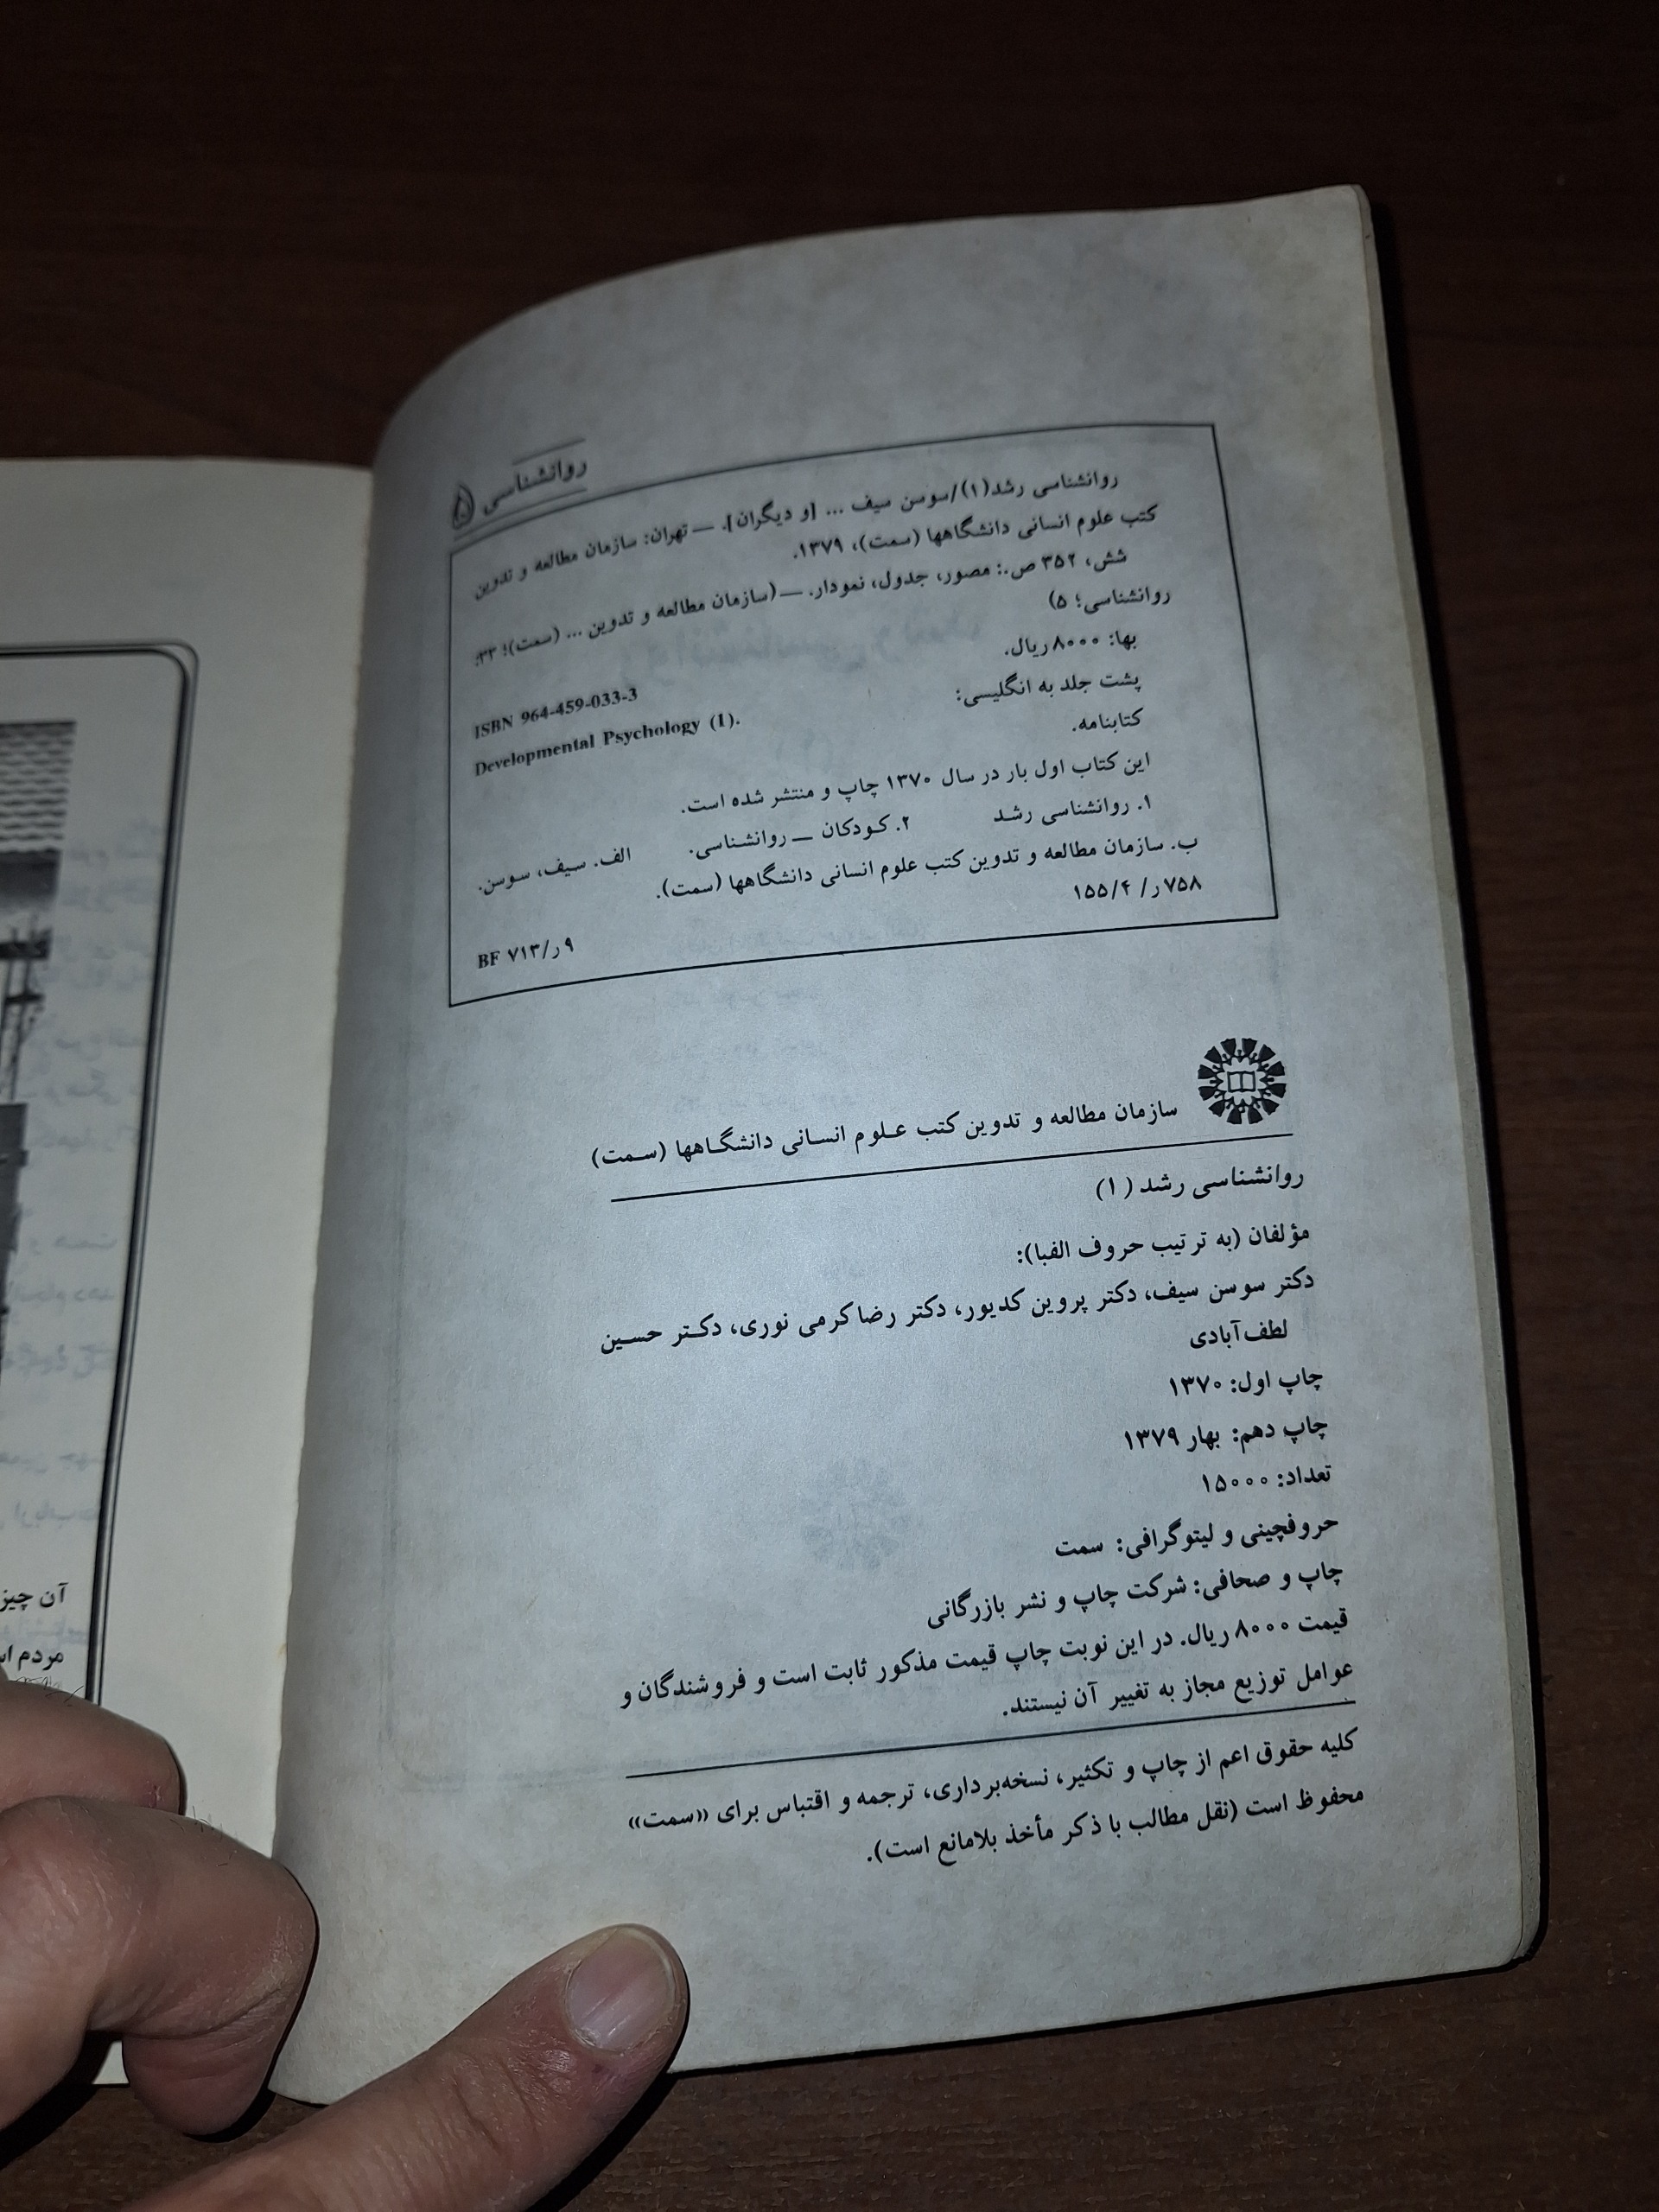 روانشناسی ۵
روانشناسی رشد(۱)/سوسن سیف ... [و دیگران]. — تهران: سازمان مطالعه و تدوین
کتب علوم انسانی دانشگاهها (سمت)، ۱۳۷۹.
شش، ۳۵۲ ص.: مصور، جدول، نمودار. — (سازمان مطالعه و تدوین ... (سمت)؛ ۳۳:
روانشناسی؛ ۵)
بها: ۸۰۰۰ ریال.
ISBN 964-459-033-3
پشت جلد به انگلیسی: Developmental Psychology (I).
کتابنامه.
این کتاب اول بار در سال ۱۳۷۰ چاپ و منتشر شده است.
۱. روانشناسی رشد ۲. کودکان — روانشناسی. الف. سیف، سوسن.
ب. سازمان مطالعه و تدوین کتب علوم انسانی دانشگاهها (سمت).
۷۵۸ر/ ۱۵۵/۴
BF ۷۱۳/ر۹
سازمان مطالعه و تدوین کتب علوم انسانی دانشگاهها (سمت)
روانشناسی رشد (۱)
مؤلفان (به ترتیب حروف الفبا):
دکتر سوسن سیف، دکتر پروین کدیور، دکتر رضا کرمی نوری، دکتر حسین
لطف‌آبادی
چاپ اول: ۱۳۷۰
چاپ دهم: بهار ۱۳۷۹
تعداد: ۱۵۰۰۰
حروفچینی و لیتوگرافی: سمت
چاپ و صحافی: شرکت چاپ و نشر بازرگانی
قیمت ۸۰۰۰ ریال. در این نوبت چاپ قیمت مذکور ثابت است و فروشندگان و
عوامل توزیع مجاز به تغییر آن نیستند.
کلیه حقوق اعم از چاپ و تکثیر، نسخه‌برداری، ترجمه و اقتباس برای «سمت»
محفوظ است (نقل مطالب با ذکر مأخذ بلامانع است).
آن چیز
مردم